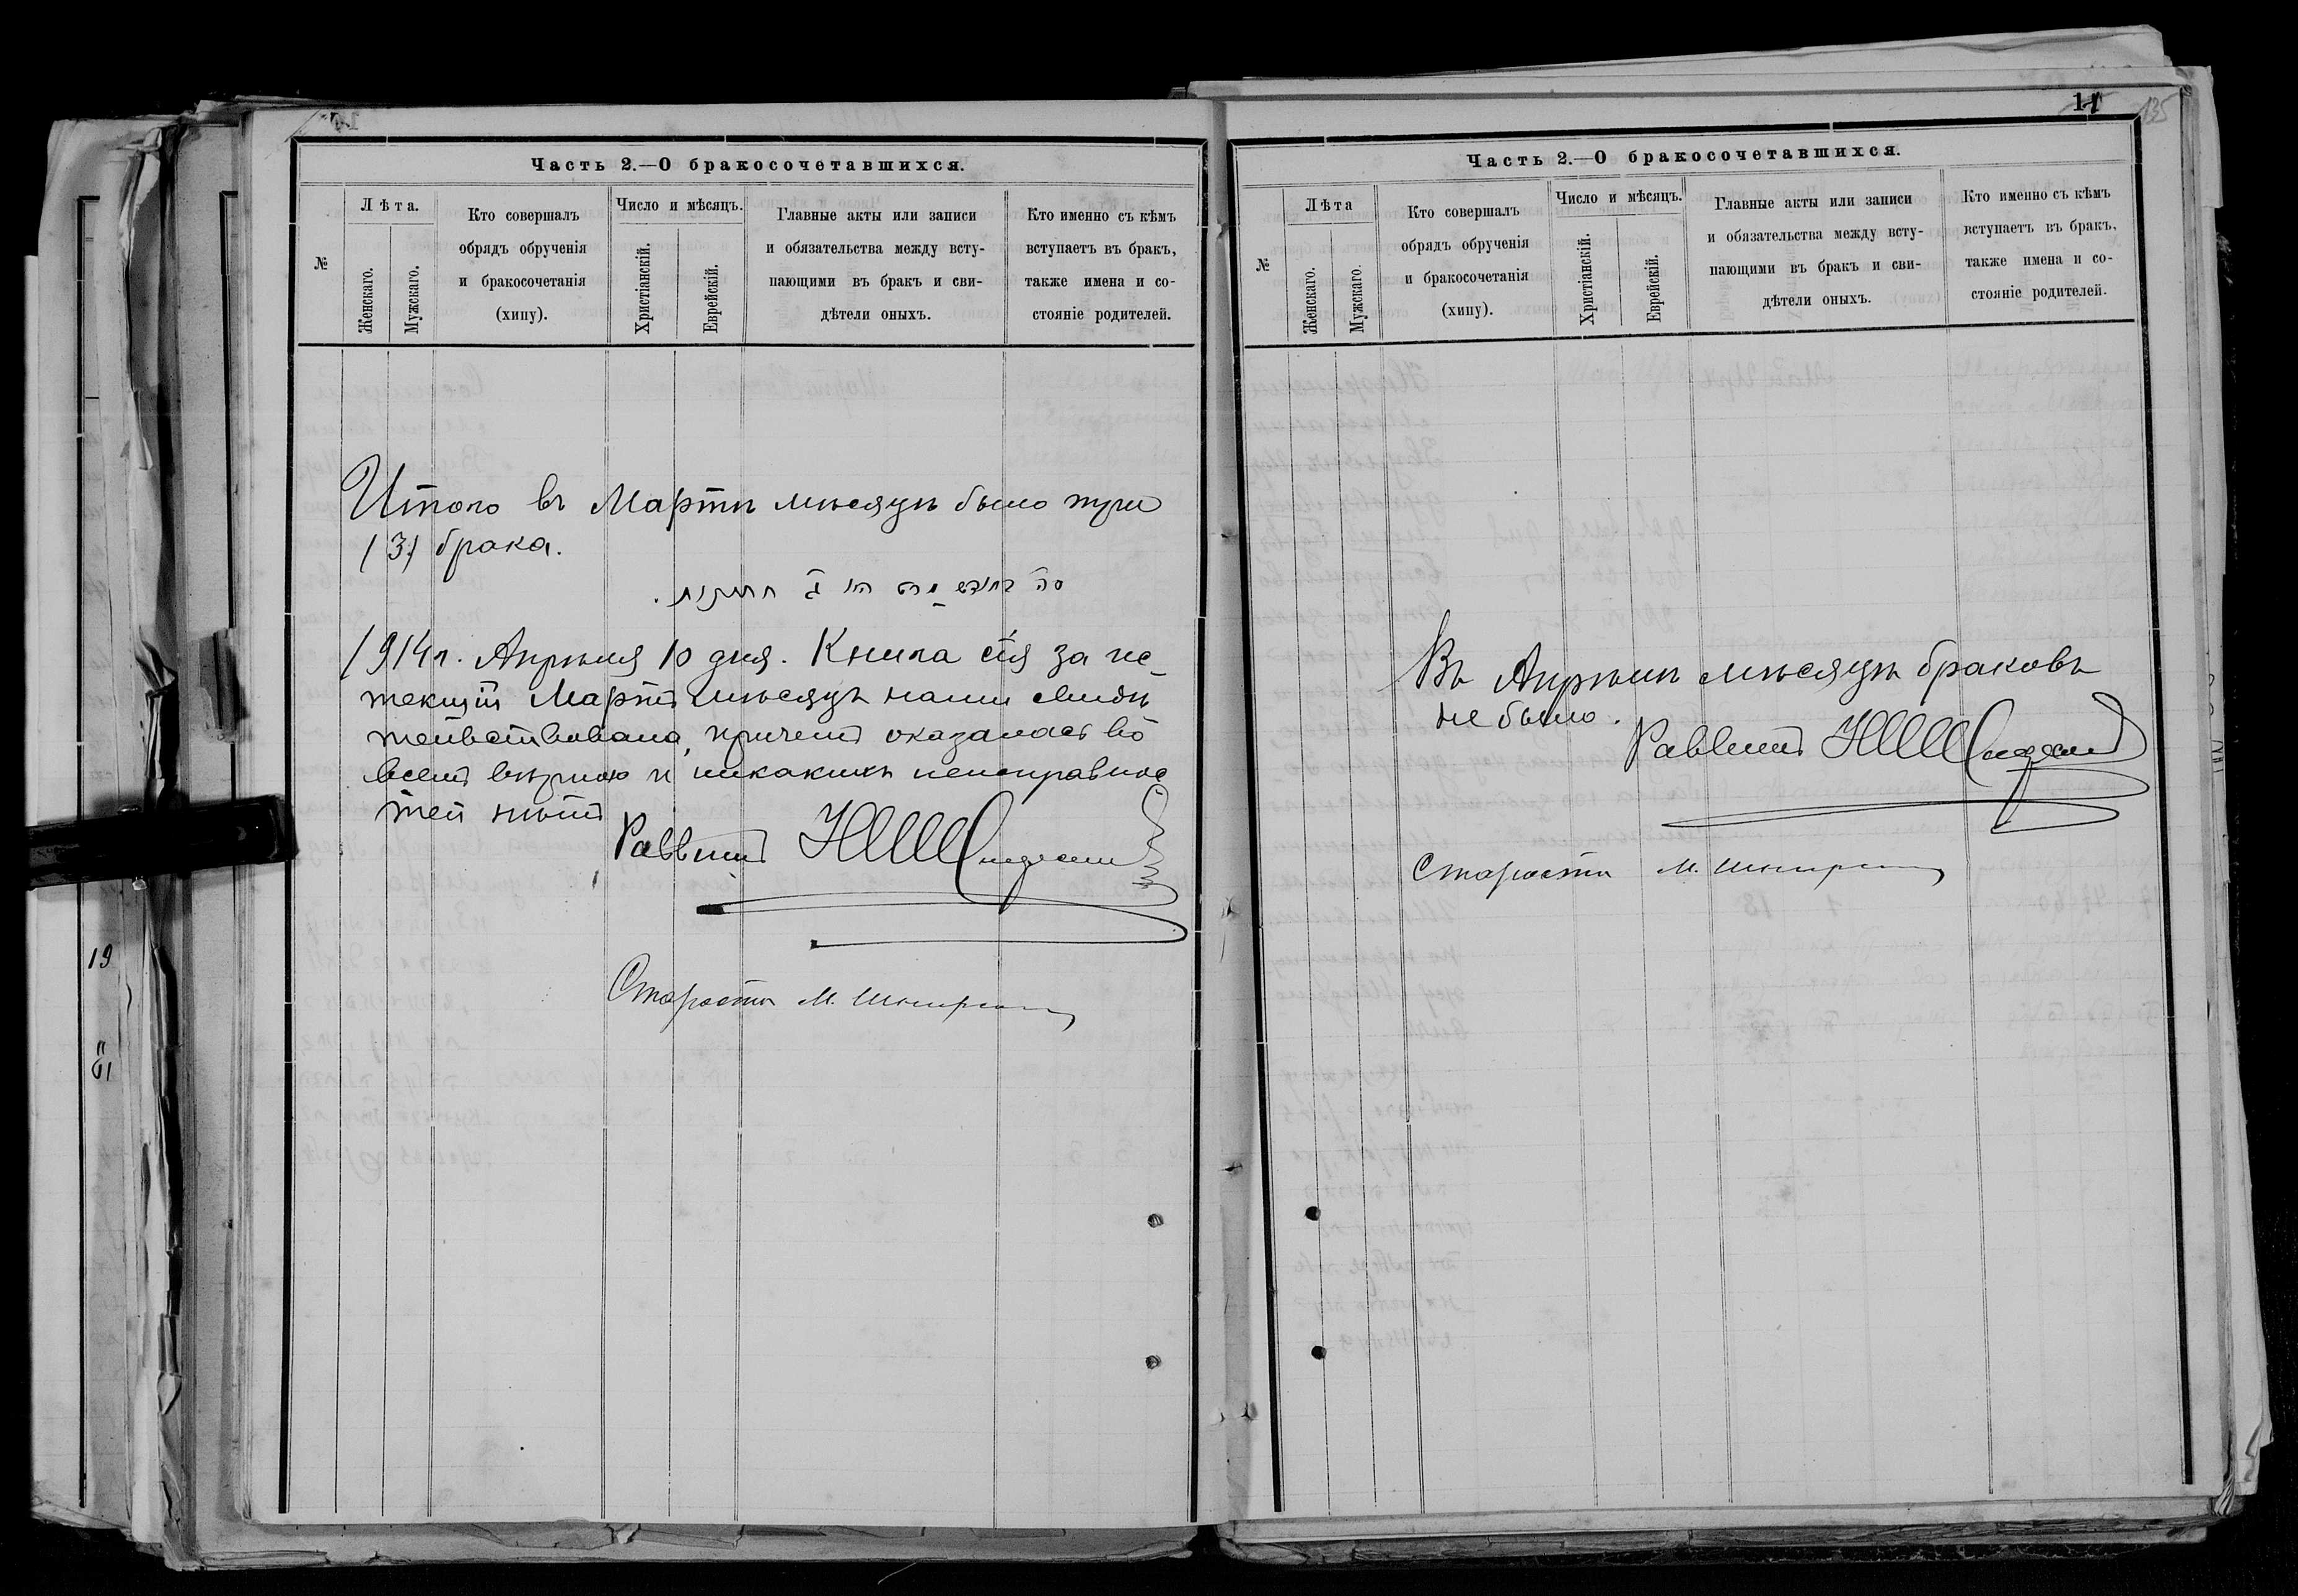 Часть 2.—О бракосочетавшихся.
№
Лѣта.
Женскаго.
Мужскаго.
Кто совершалъ
обрядъ обрученія
и бракосочетанія
(хипу).
Число и мѣсяцъ.
Христіанскій.
Еврейскій.
Главные акты или записи
и обязательства между всту-
пающими въ бракъ и сви-
дѣтели оныхъ.
Кто именно съ кѣмъ
вступаетъ въ бракъ,
также имена и со-
стояніе родителей.
Итого въ Мартѣ мѣсяцѣ было три
(3) брака.
1914 г. Апрѣля 10 дня. Книга сія за ис-
текшій Мартъ мѣсяцъ нами свидѣ
тельствована, причемъ оказалась во
всемъ вѣрною и никакихъ неисправнос
тей нѣтъ
Раввинъ
Староста М.
19
11
135
Часть 2.—О бракосочетавшихся.
№
Лѣта
Женскаго.
Мужскаго.
Кто совершалъ
обрядъ обрученія
и бракосочетанія
(хипу).
Число и мѣсяцъ.
Христіанскій.
Еврейскій.
Главные акты или записи
и обязательства между всту-
пающими въ бракъ и сви-
дѣтели оныхъ.
Кто именно съ кѣмъ
вступаетъ въ бракъ,
также имена и со-
стояніе родителей.
Въ Апрѣлѣ мѣсяцѣ браковъ
не было.
Раввинъ
Староста М.